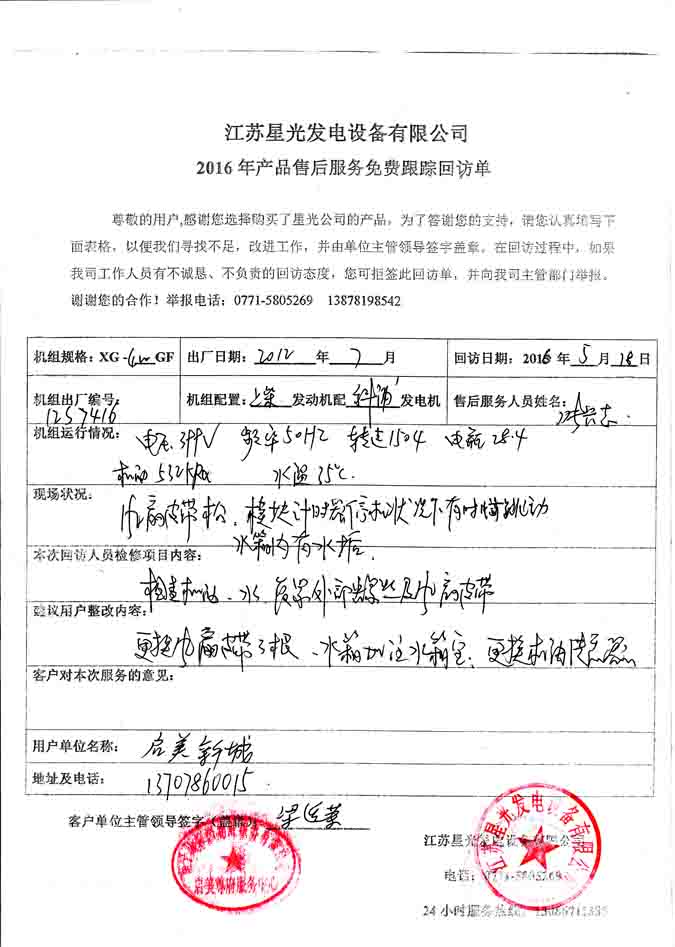 江苏星光发电设备有限公司
2016 年产品售后服务免费跟踪回访单
尊敬的用户,感谢您选择购买了星光公司的产品，为了答谢您的支持，请您认真填写下
面表格，以便我们寻找不足，改进工作，并由单位主管领导签字盖章。在回访过程中，如果
我司工作人员有不诚恳、不负责的回访态度，您可拒签此回访单，并向我司主管部门举报。
谢谢您的合作！举报电话：0771-5805269 13878198542
机组规格：XG - GF 出厂日期：2012 年 7 月 回访日期：2016 年 5 月 18 日
机组出厂编号：1257416 机组配置：上柴 发动机配 发电机 售后服务人员姓名：
机组运行情况： 电压 399V 频率 50HZ 转速 1504 电瓶 28.4
机油 532kpa 水温 35℃.
现场状况： 风扇皮带松、模块计时器停机状况下有时候跳动
水箱内有水垢.
本次回访人员检修项目内容：
检查机油、水、 外部螺丝及风扇皮带
建议用户整改内容：
更换风扇皮带3根、水箱加注水箱宝、更换机油
客户对本次服务的意见：
用户单位名称： 启美新城
地址及电话： 13707860015
客户单位主管领导签字（盖章）
江苏星光发电设备有限公司
启美 服务中心
江苏星光发电设备有限公司
电话：0771-5805269
24 小时服务热线：